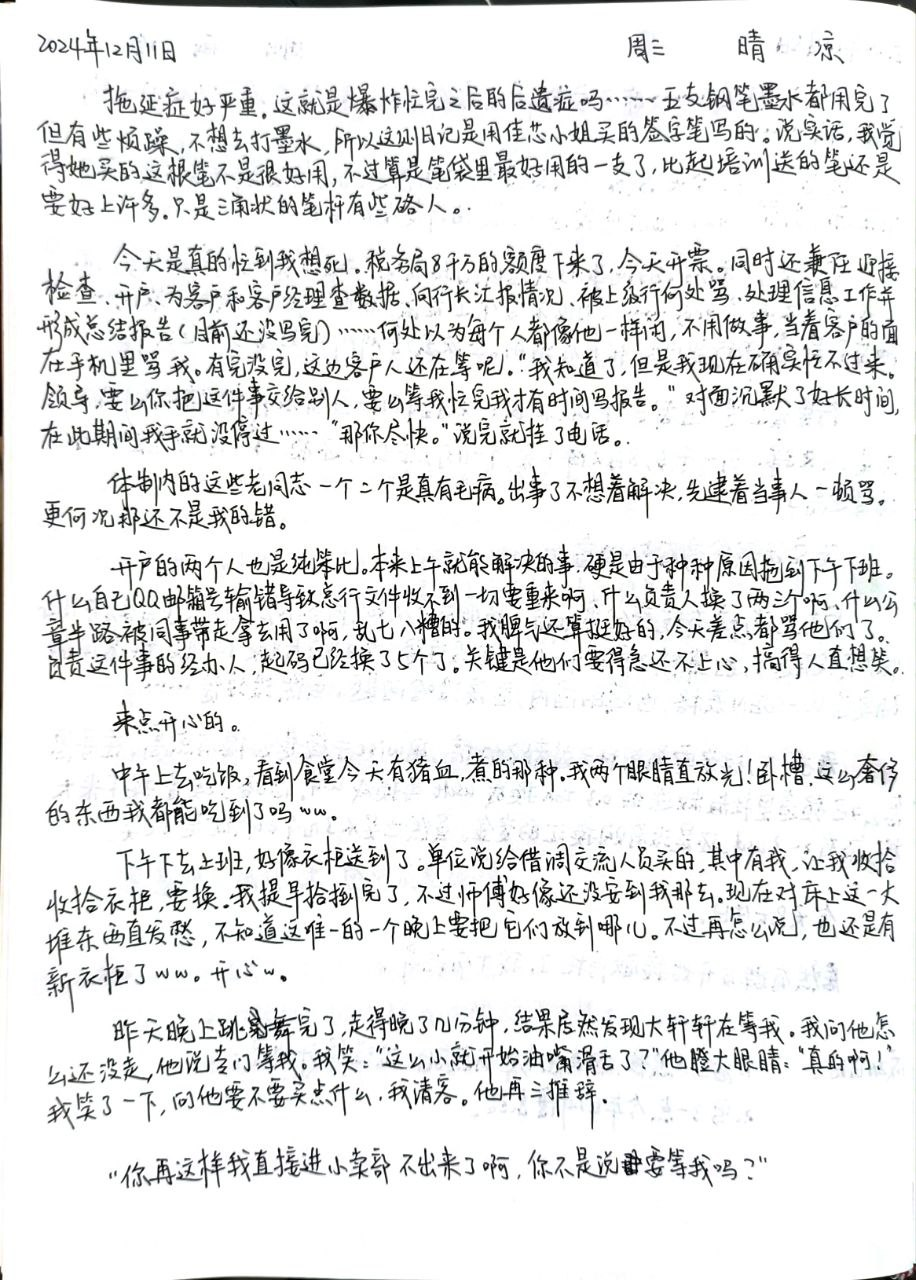 2024年12月11日 周三 晴 凉
拖延症好严重。这就是爆炸忙完之后的后遗症吗……五支钢笔墨水都用完了
但有些烦躁,不想去打墨水,所以这则日记是用佳芯小姐买的签字笔写的。说实话,我觉
得她买的这根笔不是很好用,不过算是笔袋里最好用的一支了,比起培训送的笔还是
要好上许多。只是三角状的笔杆有些硌人。
今天是真的忙到我想死。税务局8千万的额度下来了,今天开票。同时还兼任迎接
检查、开户、为客户和客户经理查数据、向行长汇报情况、被上级行何处骂、处理信息工作并
形成总结报告(目前还没写完)……何处以为每个人都像他一样闲,不用做事,当着客户的面
在手机里骂我。有完没完,这边客户人还在等呢。“我知道了,但是我现在确实忙不过来。
领导,要么你把这件事交给别人,要么等我忙完我才有时间写报告。”对面沉默了好长时间,
在此期间我手就没停过……“那你尽快。”说完就挂了电话。
体制内的这些老同志一个二个是真有毛病。出事了不想着解决,先逮着当事人一顿骂。
更何况那还不是我的错。
开户的两个人也是纯笨比。本来上午就能解决的事,硬是由于种种原因拖到下午下班。
什么自己QQ邮箱号输错导致总行文件收不到一切要重来啊、什么负责人换了两三个啊、什么公
章半路被同事带走拿去用了啊,乱七八糟的。我脾气还算挺好的,今天差点都骂他们了。
负责这件事的经办人,起码已经换了5个了。关键是他们要得急还不上心,搞得人直想笑。
来点开心的。
中午上去吃饭,看到食堂今天有猪血,煮的那种。我两个眼睛直放光!卧槽,这么奢侈
的东西我都能吃到了吗ww。
下午下去上班,好像衣柜送到了。单位说给借调交流人员买的,其中有我,让我收拾
收拾衣柜,要换。我提早拾捯完了,不过师傅好像还没安到我那去。现在对床上这一大
堆东西直发愁,不知道这唯一的一个晚上要把它们放到哪儿。不过再怎么说,也还是有
新衣柜了ww。开心w。
昨天晚上跳舞完了,走得晚了几分钟,结果居然发现大轩轩在等我。我问他怎
么还没走,他说专门等我。我笑:“这么小就开始油嘴滑舌了?”他瞪大眼睛:“真的啊!”
我笑了一下,问他要不要买点什么,我请客。他再三推辞。
“你再这样我直接进小卖部不出来了啊,你不是说要等我吗?”